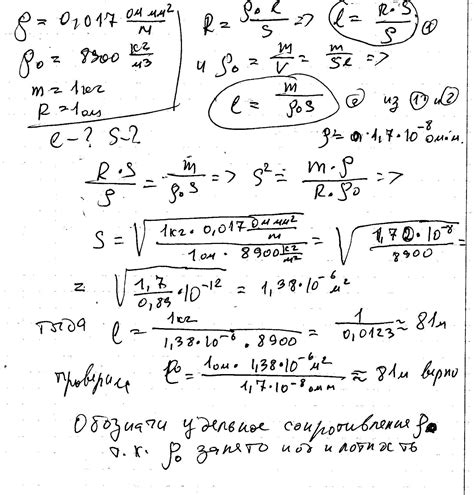 ρ = 0,017 ом мм²/м
ρ₀ = 8900 кг/м³
m = 1кг
R = 1ом
ℓ - ? S - ?
R = ρ₀ ℓ/S => ℓ = R·S/ρ ①
и ρ₀ = m/V = m/Sℓ =>
ℓ = m/ρ₀S ② из ① и ②
ρ = 1,7·10⁻⁸ ом·м
R·S/ρ = m/ρ₀·S => S² = m·ρ/R·ρ₀ =>
S = √(1кг · 0,017 ом мм²/м / 1ом · 8900 кг/м³) = √(1,7·10⁻⁸/8900) =
= √(1,7/0,89 · 10⁻¹²) = 1,38·10⁻⁶ м²
тогда ℓ = 1кг/1,38·10⁻⁶ · 8900 = 1/0,0123 ≈ 81м
проверим ℓ = 1ом · 1,38·10⁻⁶ м²/1,7·10⁻⁸ ом м ≈ 81м верно
Обозначи удельное сопротивление ρ
т.к. ρ₀ занято под плотность